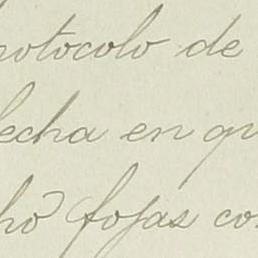 rotocolo de
fecha en qu
ho fojas co